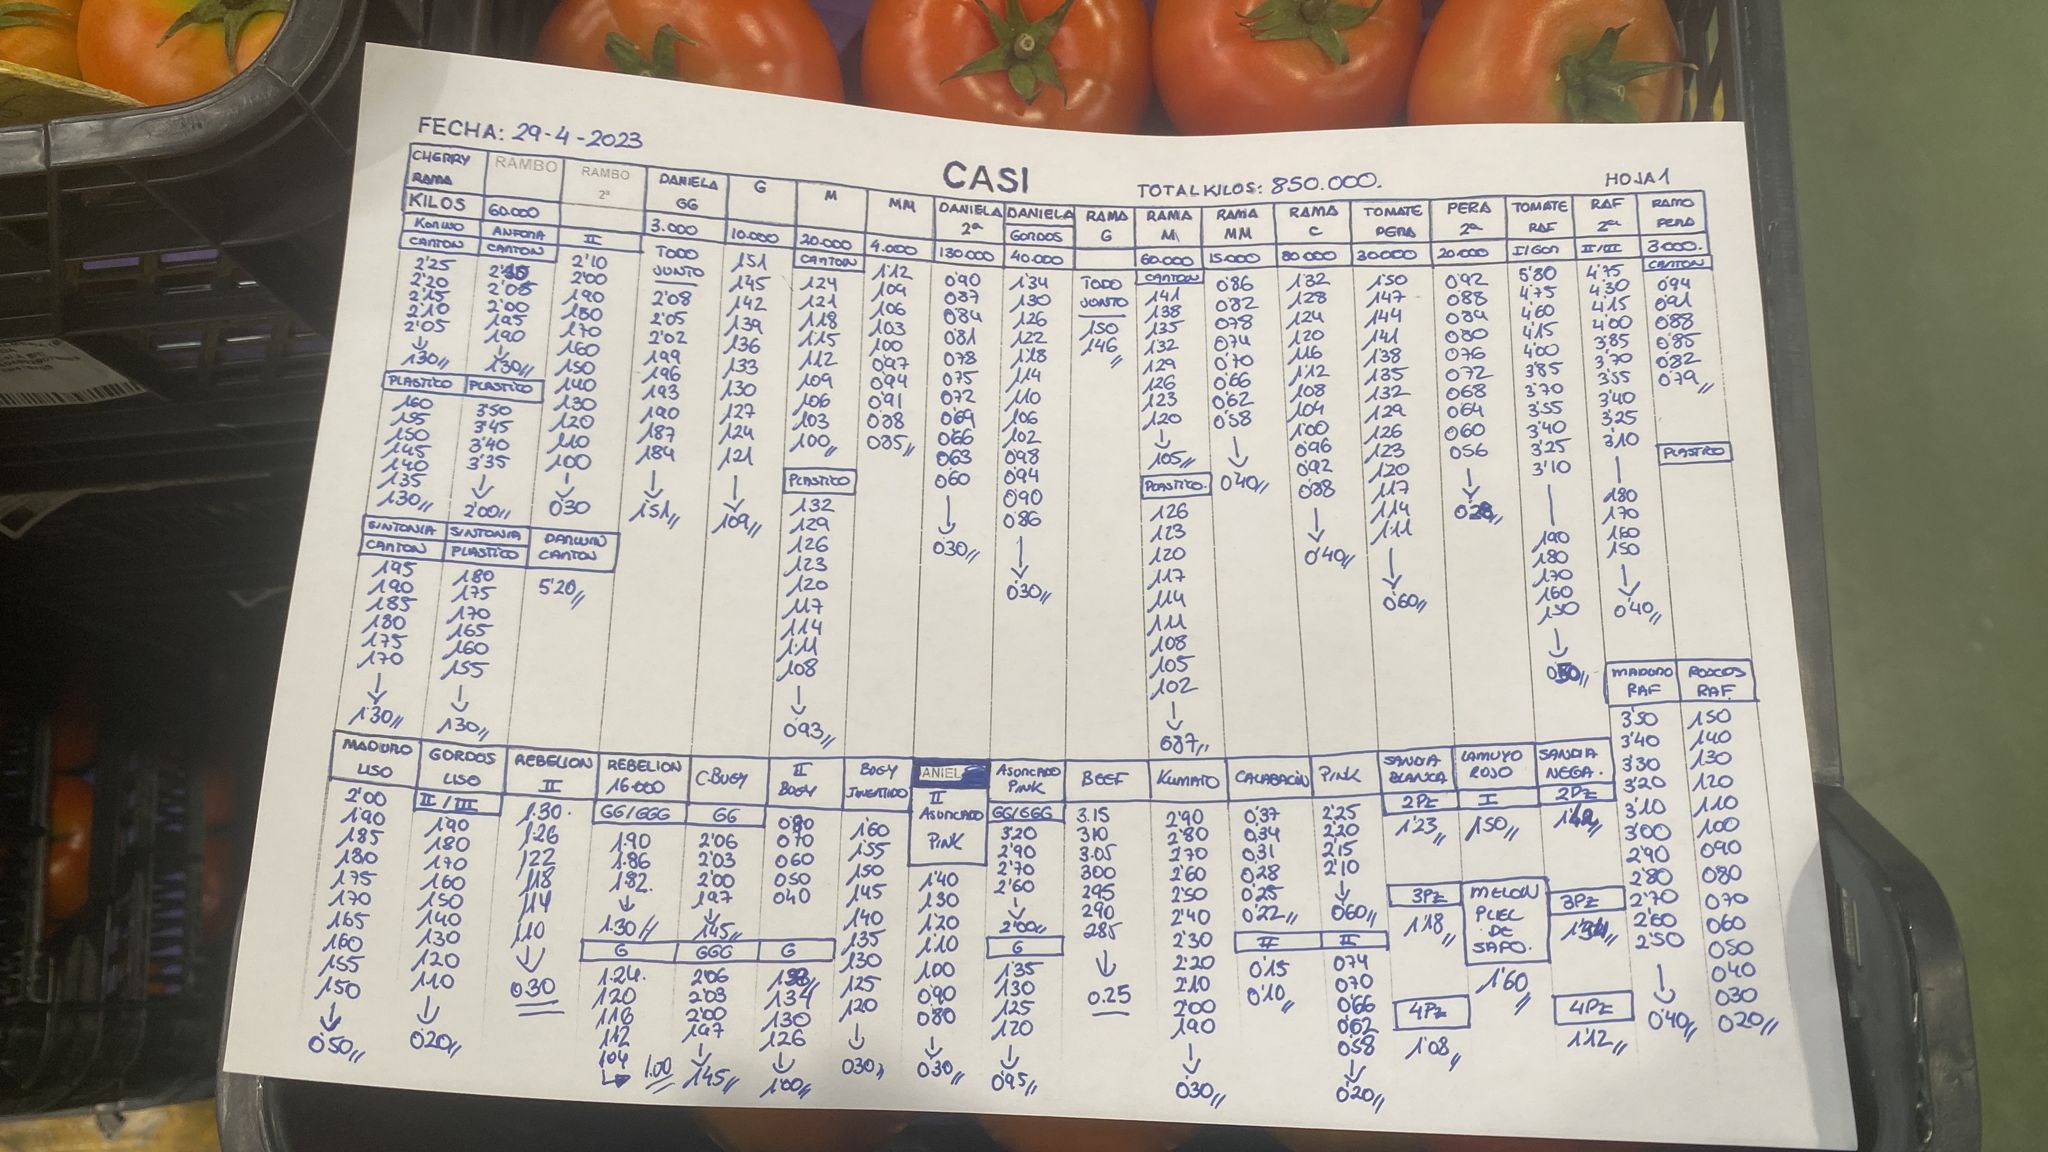 FECHA: 29-4-2023
CASI
TOTAL KILOS: 850.000.
HOJA 1
CHERRY RAMA
KILOS
CARTON
2'25
2'20
2'15
2'10
2'05
1'30
PLASTICO
160
155
150
145
140
135
130
SINTONIA
CARTON
195
190
185
180
175
170
1'30
RAMBO
60.000
CARTON
2'05
2'00
195
190
1'30
PLASTICO
3'50
3'45
3'40
3'35
2'00
SINTONIA
PLASTICO
180
175
170
165
160
155
1'30
RAMBO
2ª
II
2'10
2'00
190
180
170
160
150
140
130
120
110
100
030
CARTON
5'20
DANIELA
GG
3.000
TODO
JUNTO
2'08
2'05
2'02
199
196
193
190
187
184
1'51
G
10.000
151
145
142
139
136
133
130
127
124
121
109
M
20.000
CARTON
124
121
118
115
112
109
106
103
100
PLASTICO
132
129
126
123
120
117
114
111
108
093
MM
4.000
112
109
106
103
100
097
094
091
088
085
DANIELA
2ª
130.000
090
087
084
081
078
075
072
069
066
063
060
030
DANIELA
GORDOS
40.000
134
130
126
122
118
114
110
106
102
098
094
090
086
030
RAMA
G
TODO
JUNTO
150
146
RAMA
M
60.000
CARTON
141
138
135
132
129
126
123
120
105
PLASTICO
126
123
120
117
114
111
108
105
102
087
RAMA
MM
15.000
086
082
078
074
070
066
062
058
040
RAMA
C
80.000
132
128
124
120
116
112
108
104
100
096
092
088
0'40
TOMATE
PERA
30.000
150
147
144
141
138
135
132
129
126
123
120
117
114
111
060
PERA
2ª
20.000
092
088
084
080
076
072
068
064
060
056
028
TOMATE
RAF
I/GOR
5'80
4'75
4'60
4'15
4'00
3'85
3'70
3'55
3'40
3'25
3'10
190
180
170
160
150
RAF
2ª
II/III
4'75
4'30
4'15
4'00
3'85
3'70
3'55
3'40
3'25
3'10
180
170
160
150
0'40
RAMO
PERA
3.000.
CARTON
094
091
088
085
082
079
PLASTICO
MADURO
RAF
3'50
3'40
3'30
3'20
3'10
3'00
2'90
2'80
2'70
2'60
2'50
0'40
RAF
150
140
130
120
110
100
090
080
070
060
050
040
030
020
MADURO
LISO
2'00
190
185
180
175
170
165
160
155
150
050
GORDOS
LISO
II/III
190
180
170
160
150
140
130
120
110
020
REBELION
II
1.30.
1.26
122
118
114
110
0.30
REBELION
16.000
GG/GGG
1.90
1.86
1.82.
1.30
G
1.24.
120
116
112
104
1.00
C.BUGY
GG
2'06
2'03
2'00
197
145
GGG
2'06
2'03
2'00
197
145
II
BUGY
080
070
060
050
040
G
134
130
126
100
BUGY
INVERTIDO
160
155
150
145
140
135
130
125
120
030
II
ASURCADO
PINK
1'40
130
120
110
100
090
080
030
ASURCADO
PINK
GG/GGG
3.20
2'90
2'70
2'60
2'00
G
135
130
125
120
095
BEEF
3.15
310
3.05
300
295
290
285
0.25
KUMATO
2'90
2'80
270
2'60
2'50
2'40
2'30
2'20
2'10
2'00
190
030
CALABACIN
0'37
0'34
0'31
028
0'25
0'22
II
0'15
0'10
PINK
2'25
220
2'15
2'10
060
II
074
070
066
062
058
020
SANDIA
BLANCA
2Pz
1'23
3Pz
1'18
4Pz
1'08
LAMUYO
ROJO
I
150
MELON
PIEL
DE
SAPO.
1'60
SANDIA
NEGA.
2Pz
3Pz
4Pz
1'12